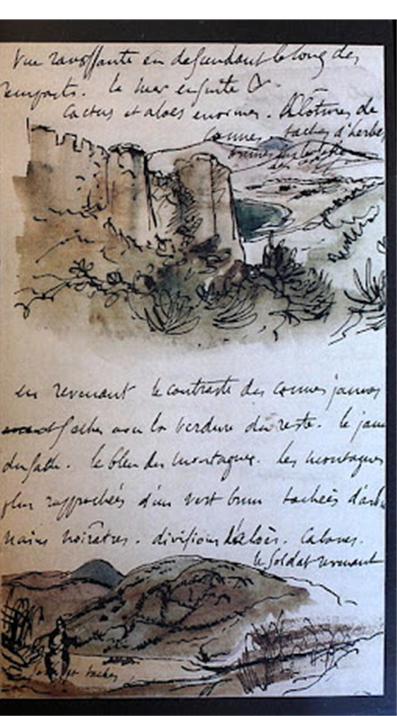 Vue ravissante en descendant le long des
remparts. la mer ensuite &
Cactus et aloes enormes. Clotures de
cannes. taches d'herbes
brunes sur le sable
en revenant le contraste des cannes jaunes
seches avec la verdure du reste. le jau
du sable. le bleu des montagnes. Les montagnes
plus rapprochées d'un vert brun tachées d'arb
nains noirâtres. divisions d'aloès. Cabanes.
le soldat revenant
taches